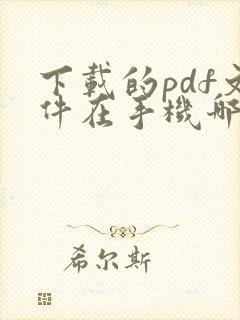 下載的pdf文
件在手機哪
希尔斯